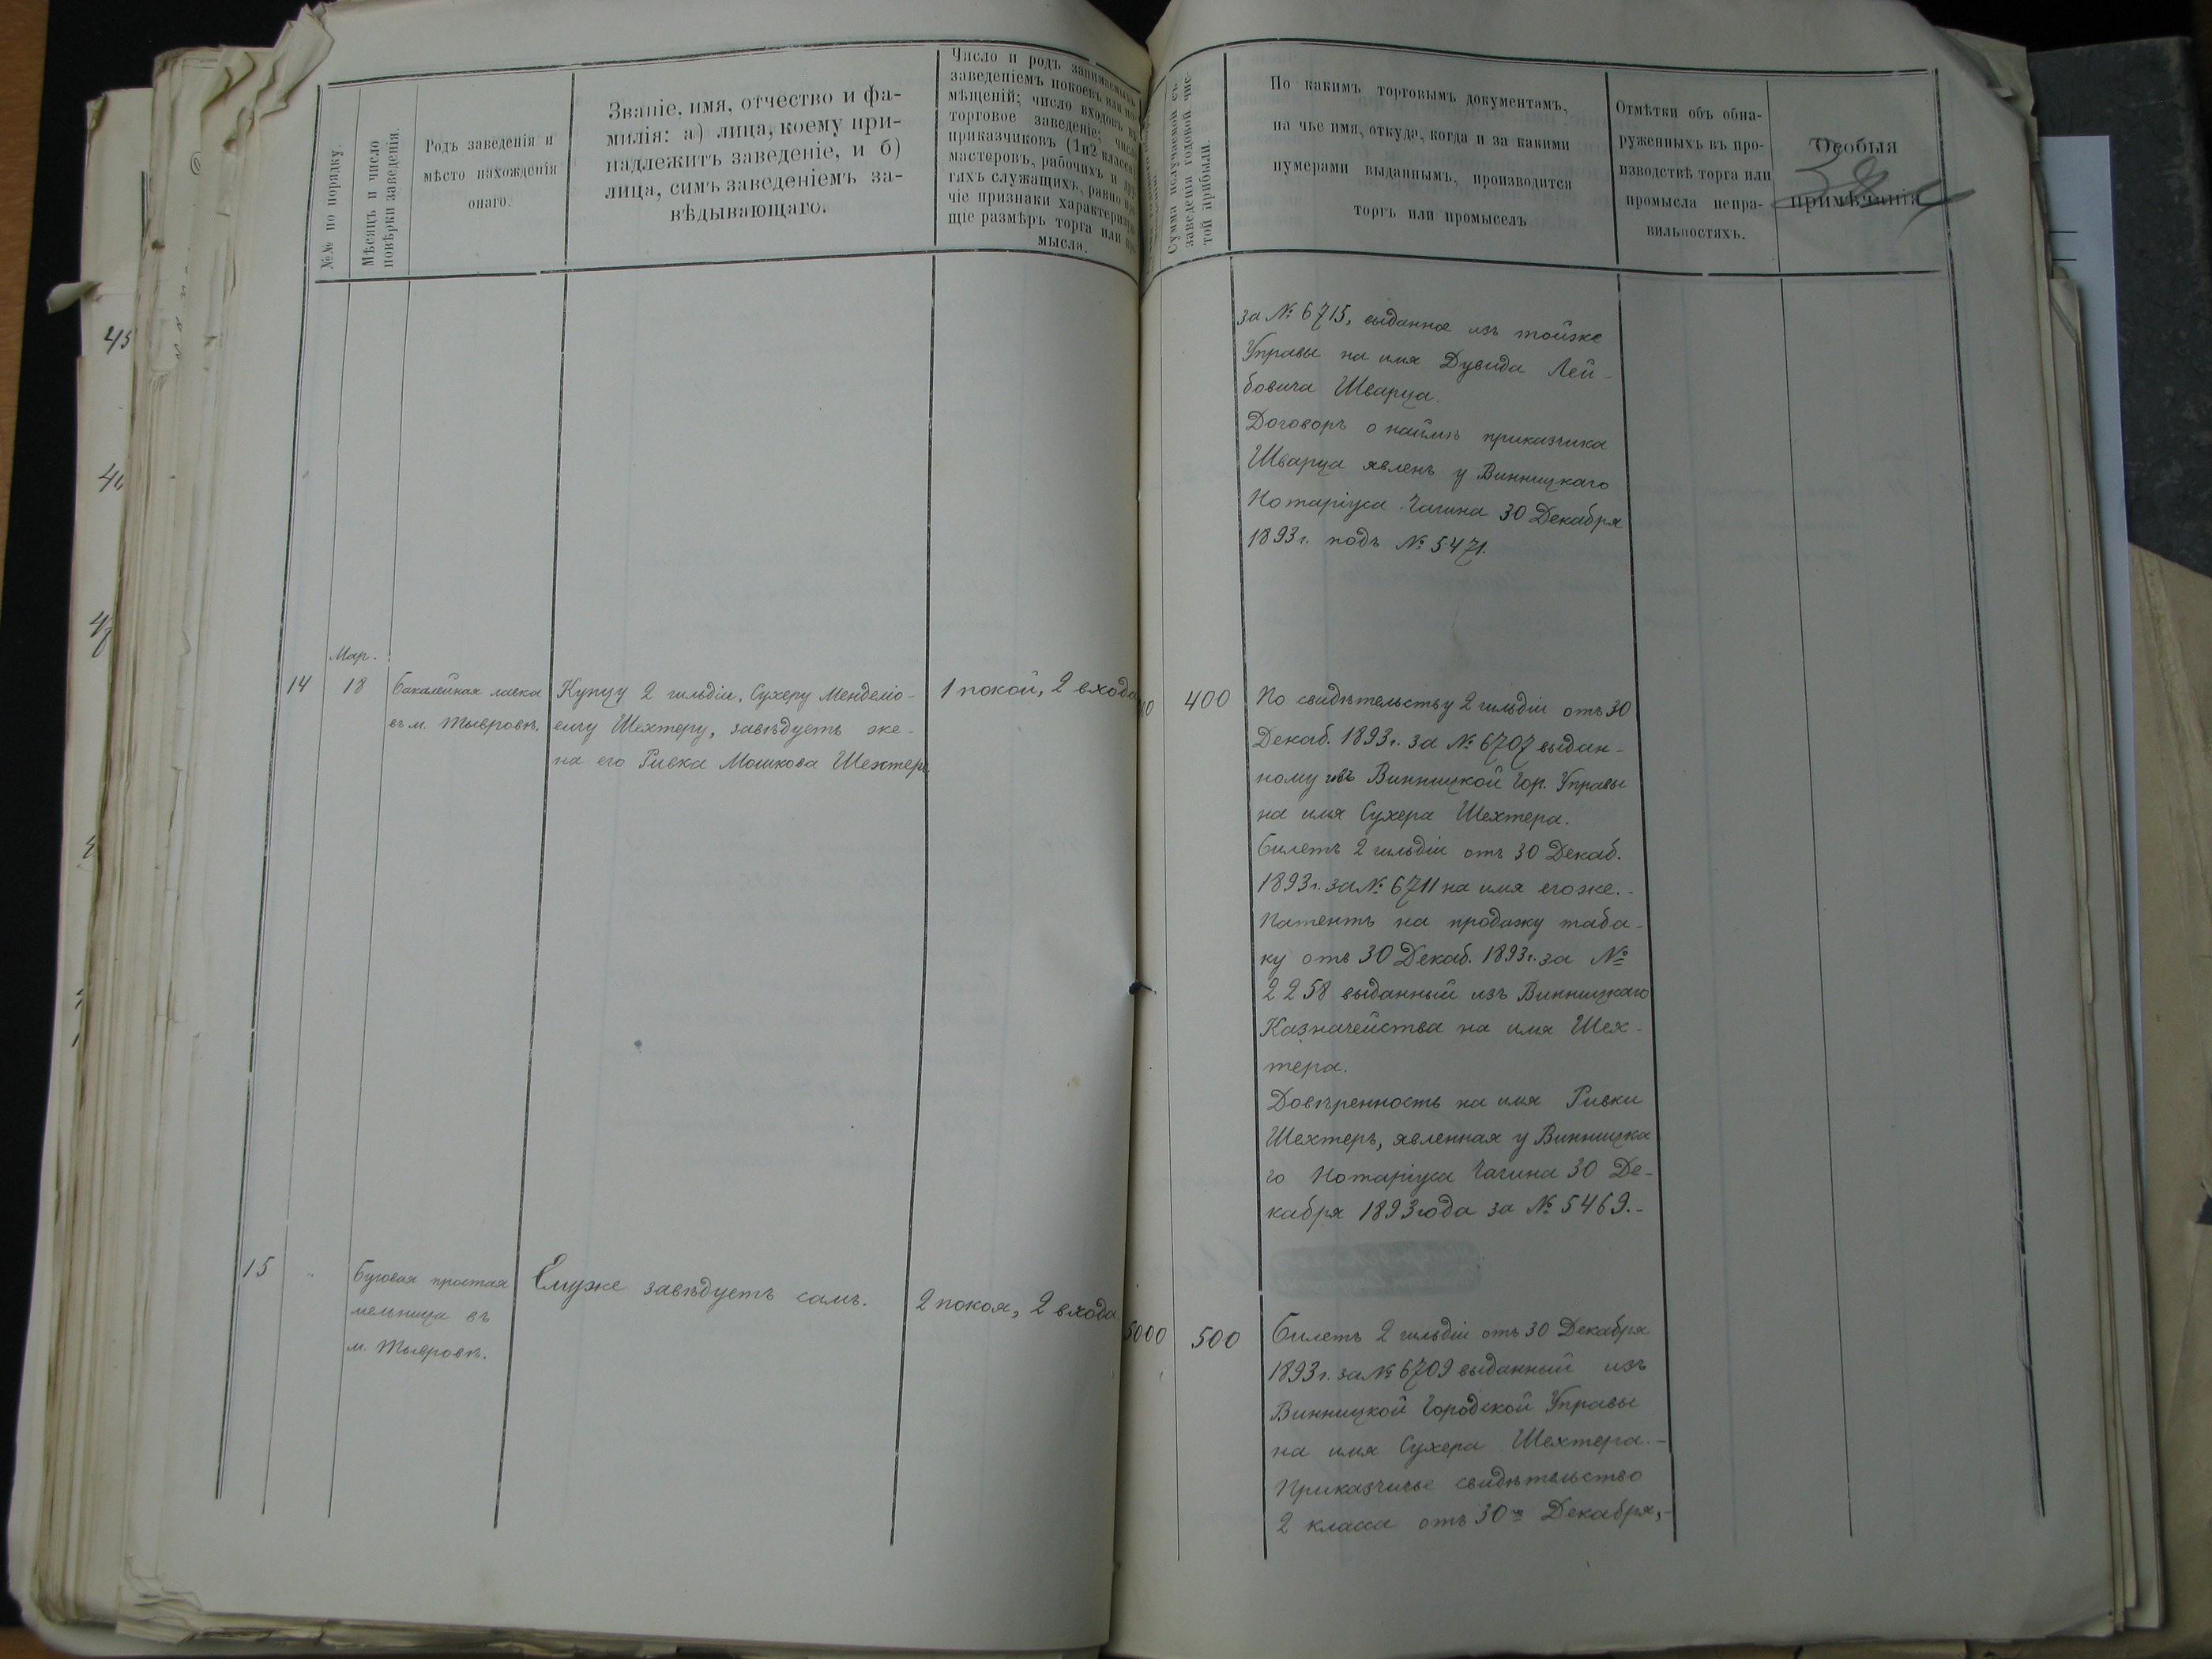 №№ по порядку.
Мѣсяцъ и число
повѣрки заведенія.
Родъ заведенія и
мѣсто нахожденія
онаго.
Званіе, имя, отчество и фа-
милія: а) лица, коему при-
надлежитъ заведеніе, и б)
лица, симъ заведеніемъ за-
вѣдывающаго.
Число и родъ занимаемыхъ
заведеніемъ покоевъ или по-
мѣщеній; число входовъ въ
торговое заведеніе; число
приказчиковъ (1 и 2 класса)
мастеровъ, рабочихъ и дру-
гихъ служащихъ, равно про-
чіе признаки характеризую-
щіе размѣръ торга или про-
мысла.
Сумма получаемой съ
заведенія годовой чис-
той прибыли.
По какимъ торговымъ документамъ,
на чье имя, откуда, когда и за какими
нумерами выданнымъ, производится
торгъ или промыселъ
Отмѣтки объ обна-
руженныхъ въ про-
изводствѣ торга или
промысла непра-
вильностяхъ.
Особыя
примѣчанія
за № 6715, выданное изъ тойже
Управы на имя Дувида Лей-
бовича Шварца.
Договоръ о наймѣ приказчика
Шварца явленъ у Винницкаго
Нотаріуса Чагина 30 Декабря
1893 г. подъ № 5471.
Мар.
14 18 Бакалейная лавка
въ м. Тывровѣ.
Купцу 2 гильдіи, Сухеру Менделіо-
вичу Шехтеру, завѣдуетъ же-
на его Ривка Мошкова Шехтеръ
1 покой, 2 входа
400
По свидѣтельству 2 гильдіи отъ 30
Декаб. 1893 г. за № 6707 выдан-
ному изъ Винницкой Гор. Управы
на имя Сухера Шехтера.
Билетъ 2 гильдіи отъ 30 Декаб.
1893 г. за № 6711 на имя егоже.-
Патентъ на продажу таба-
ку отъ 30 Декаб. 1893 г. за №
2258 выданный изъ Винницкаго
Казначейства на имя Шех-
тера.
Довѣренность на имя Ривки
Шехтеръ, явленная у Винницка
го Нотаріуса Чагина 30 Де-
кабря 1893 года за № 5469.-
15 " Буговая простая
мельница въ
м. Тывровѣ.
Емуже завѣдуетъ самъ.
2 покоя, 2 входа
5000 500
Билетъ 2 гильдіи отъ 30 Декабря
1893 г. за № 6709 выданный изъ
Винницкой Городской Управы
на имя Сухера Шехтера.-
Приказчичье свидѣтельство
2 класса отъ 30го Декабря,-
45